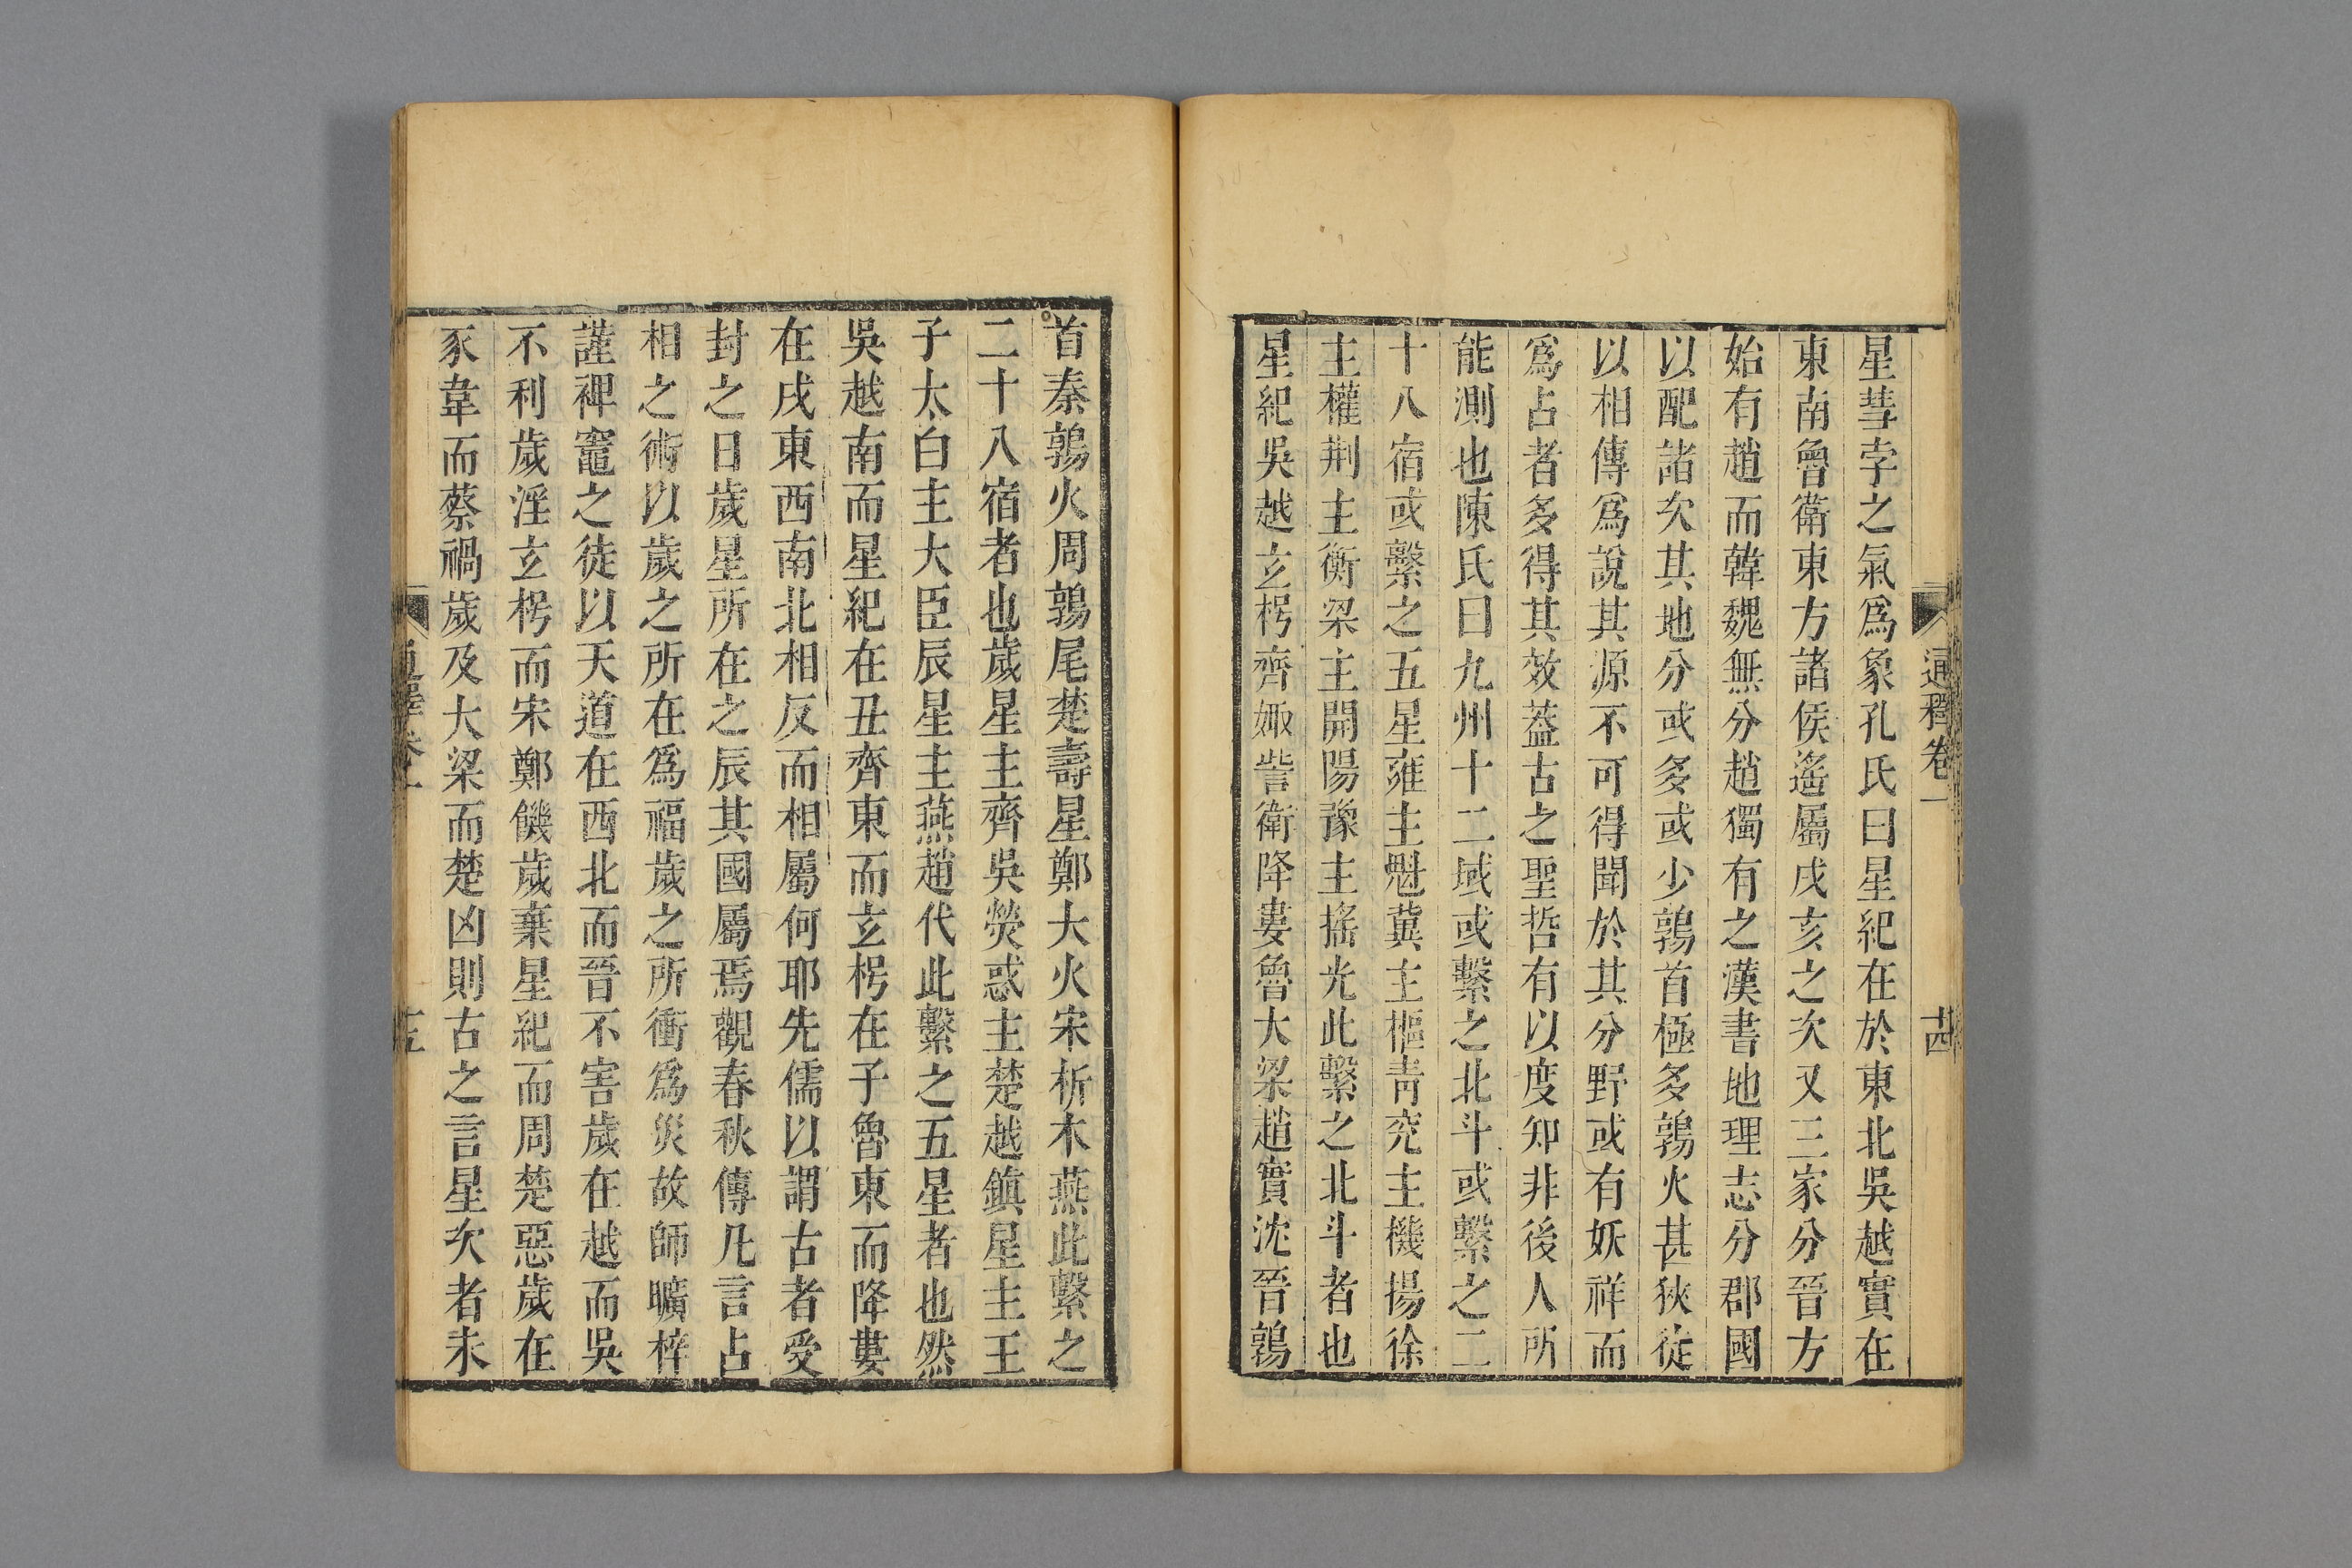 通釋卷一
十四
星彗孛之氣爲象孔氏曰星紀在於東北吳越實在
東南魯衛東方諸侯遙屬戌亥之次又三家分晉方
始有趙而韓魏無分趙獨有之漢書地理志分郡國
以配諸次其地分或多或少鶉首極多鶉火甚狹徒
以相傳爲說其源不可得聞於其分野或有妖祥而
爲占者多得其效蓋古之聖哲有以度知非後人所
能測也陳氏曰九州十二域或繫之北斗或繫之二
十八宿或繫之五星雍主魁冀主樞青兖主機揚徐
主權荆主衡梁主開陽豫主搖光此繫之北斗者也
星紀吳越玄枵齊娵訾衛降婁魯大梁趙實沈晉鶉
首秦鶉火周鶉尾楚壽星鄭大火宋析木燕此繫之
二十八宿者也歲星主齊吳熒惑主楚越鎮星主王
子太白主大臣辰星主燕趙代此繫之五星者也然
吳越南而星紀在丑齊東而玄枵在子魯東而降婁
在戌東西南北相反而相屬何耶先儒以謂古者受
封之日歲星所在之辰其國屬焉觀春秋傳凡言占
相之術以歲之所在爲福歲之所衝爲災故師曠梓
謹裨竈之徒以天道在西北而晉不害歲在越而吳
不利歲淫玄枵而宋鄭饑歲棄星紀而周楚惡歲在
豕韋而蔡禍歲及大梁而楚凶則古之言星次者未